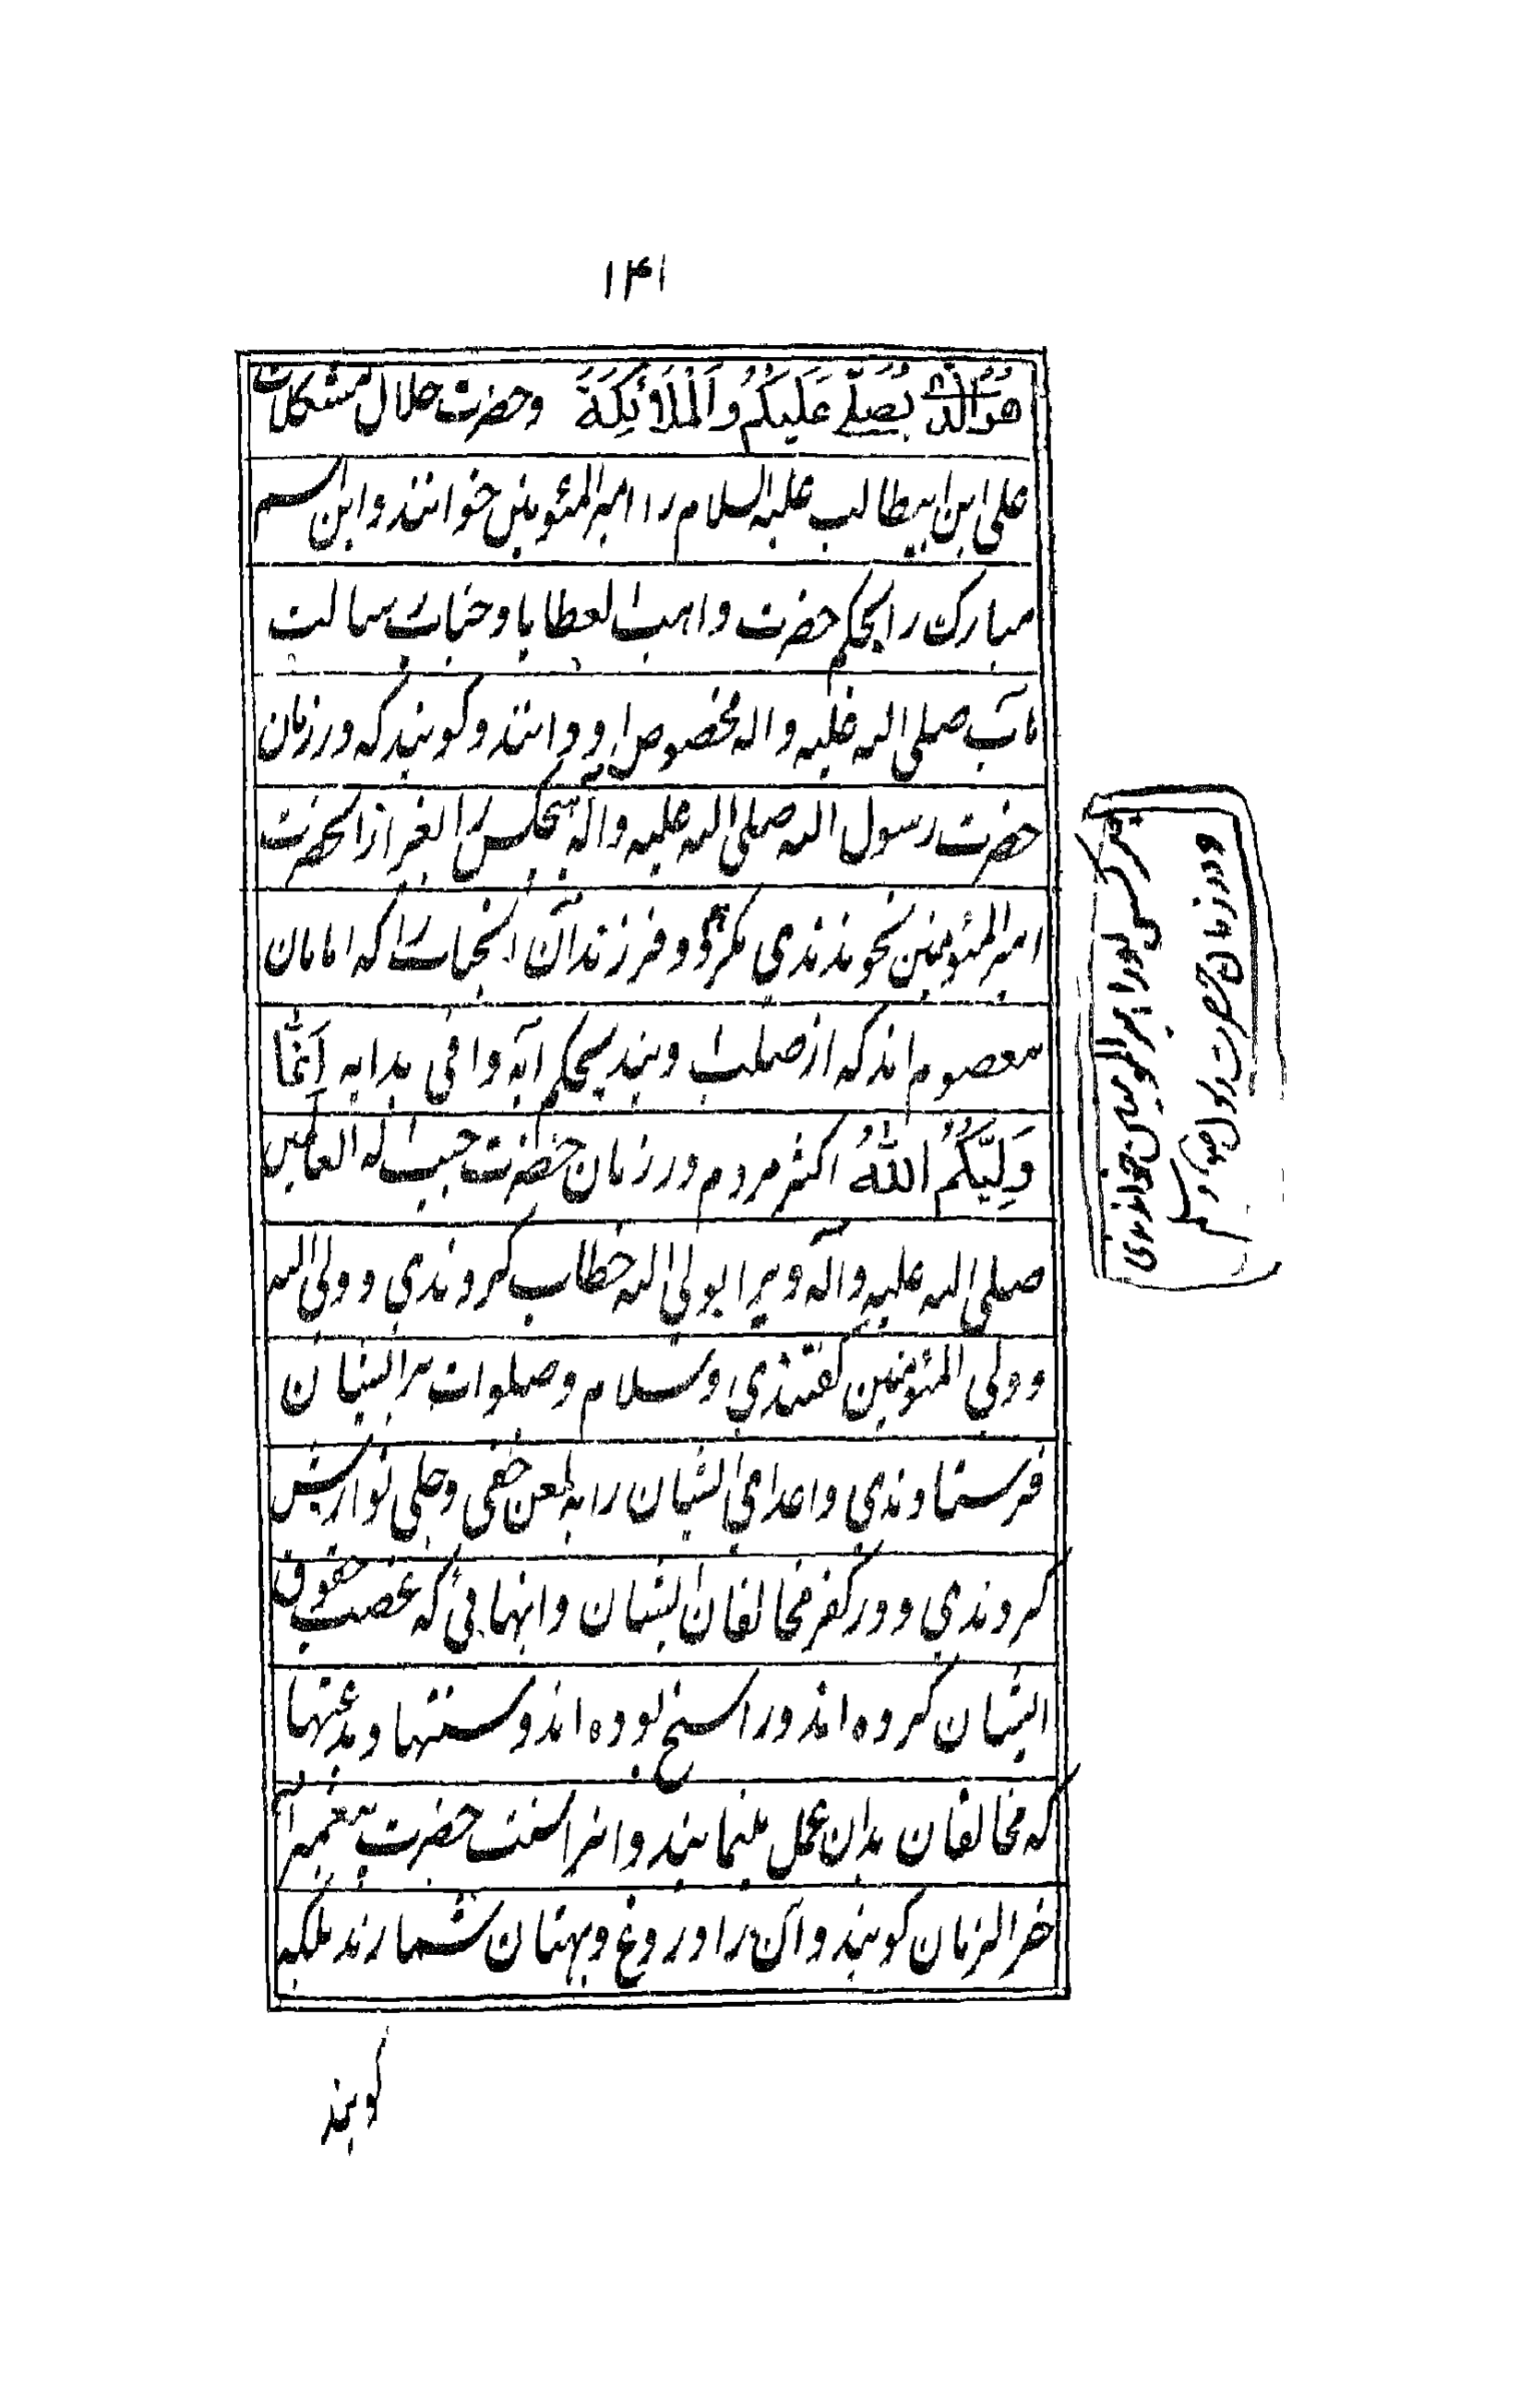 ۱۴۱
هُوَ الَّذی یُصَلّی عَلَیکُم وَالمَلائِکَةَ وحضرت حلال مشکلات
علی ابن ابیطالب علیه السلام را امیرالمئومنین خوانند و این اسم
مبارک را بحکم حضرت واهب العطایا و جناب رسالت
مآب صلی الله علیه واله مخصوص او دانند و کویند که در زمان
حضرت رسول الله صلی الله علیه واله هیچکس را بغیر از انحضرت
امیرالمئومنین نخوندندی مکر او و فرزندان انجناب را که امامان
معصوم اند که از صلب ویند بحکم آیه وافی هدایه اِنَّما
وَلِیَّکُمُ اللهُ اکثر مردم در زمان حضرت حبیب اله العالمین
صلی الله علیه وآله ویرا بولی الله خطاب کردندی و ولی الله
و ولی المئومنین کفتندی و سلام و صلوات بر ایشان
فرستادندی و اعدای ایشان را به لعن خفی و جلی نوارش
کردندی و در کفر مخالفان ایشان و انهایی که غصب حقوق
ایشان کرده اند و راسخ بوده اند و سنتها و بدعتها
که مخالفان بدان عمل مینمایند و انرا سنت حضرت پیغمبر آ
خر الزمان کویند و آن را دروغ و بهتان شمارند بلکه
کویند
ودر زمان حضرت رسول
هر کسی اورا امیرالمومنین خواندندی